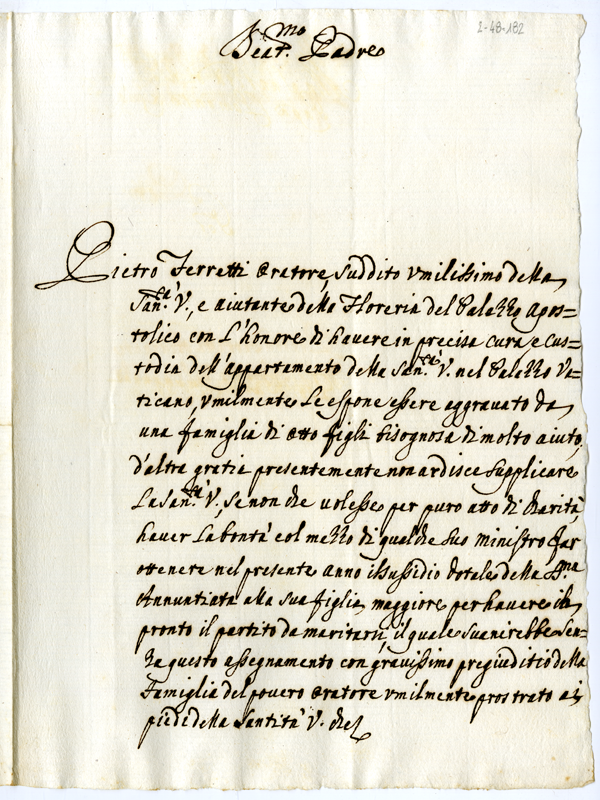 2-48-182
Beat.mo Padre
Pietro Ferretti Oratore, suddito umilissimo della
San.tà V., e aiutante della Floreria del Palazzo Apos=
tolico con l'honore di havere in precisa cura, e cus=
todia dell'appartamento della San.tà V. nel Palazzo Va=
ticano, umilmente le espone essere aggravato da
una famiglia di otto figli bisognosa di molto aiuto,
d'altra gratia presentemente non ardisce supplicare
la San.tà V., se non che volesse per puro atto di charità
haver la bontà col mezzo di qualche suo ministro far
ottenere nel presente anno il sussidio dotale della SS.ma
Annuntiata alla sua figlia maggiore per havere in
pronto il partito da maritarsi, il quale svanirebbe sen=
za questo assegnamento con gravissimo pregiuditio della
Famiglia del povero Oratore umilmente prostrato ai
piedi della Santità V. che